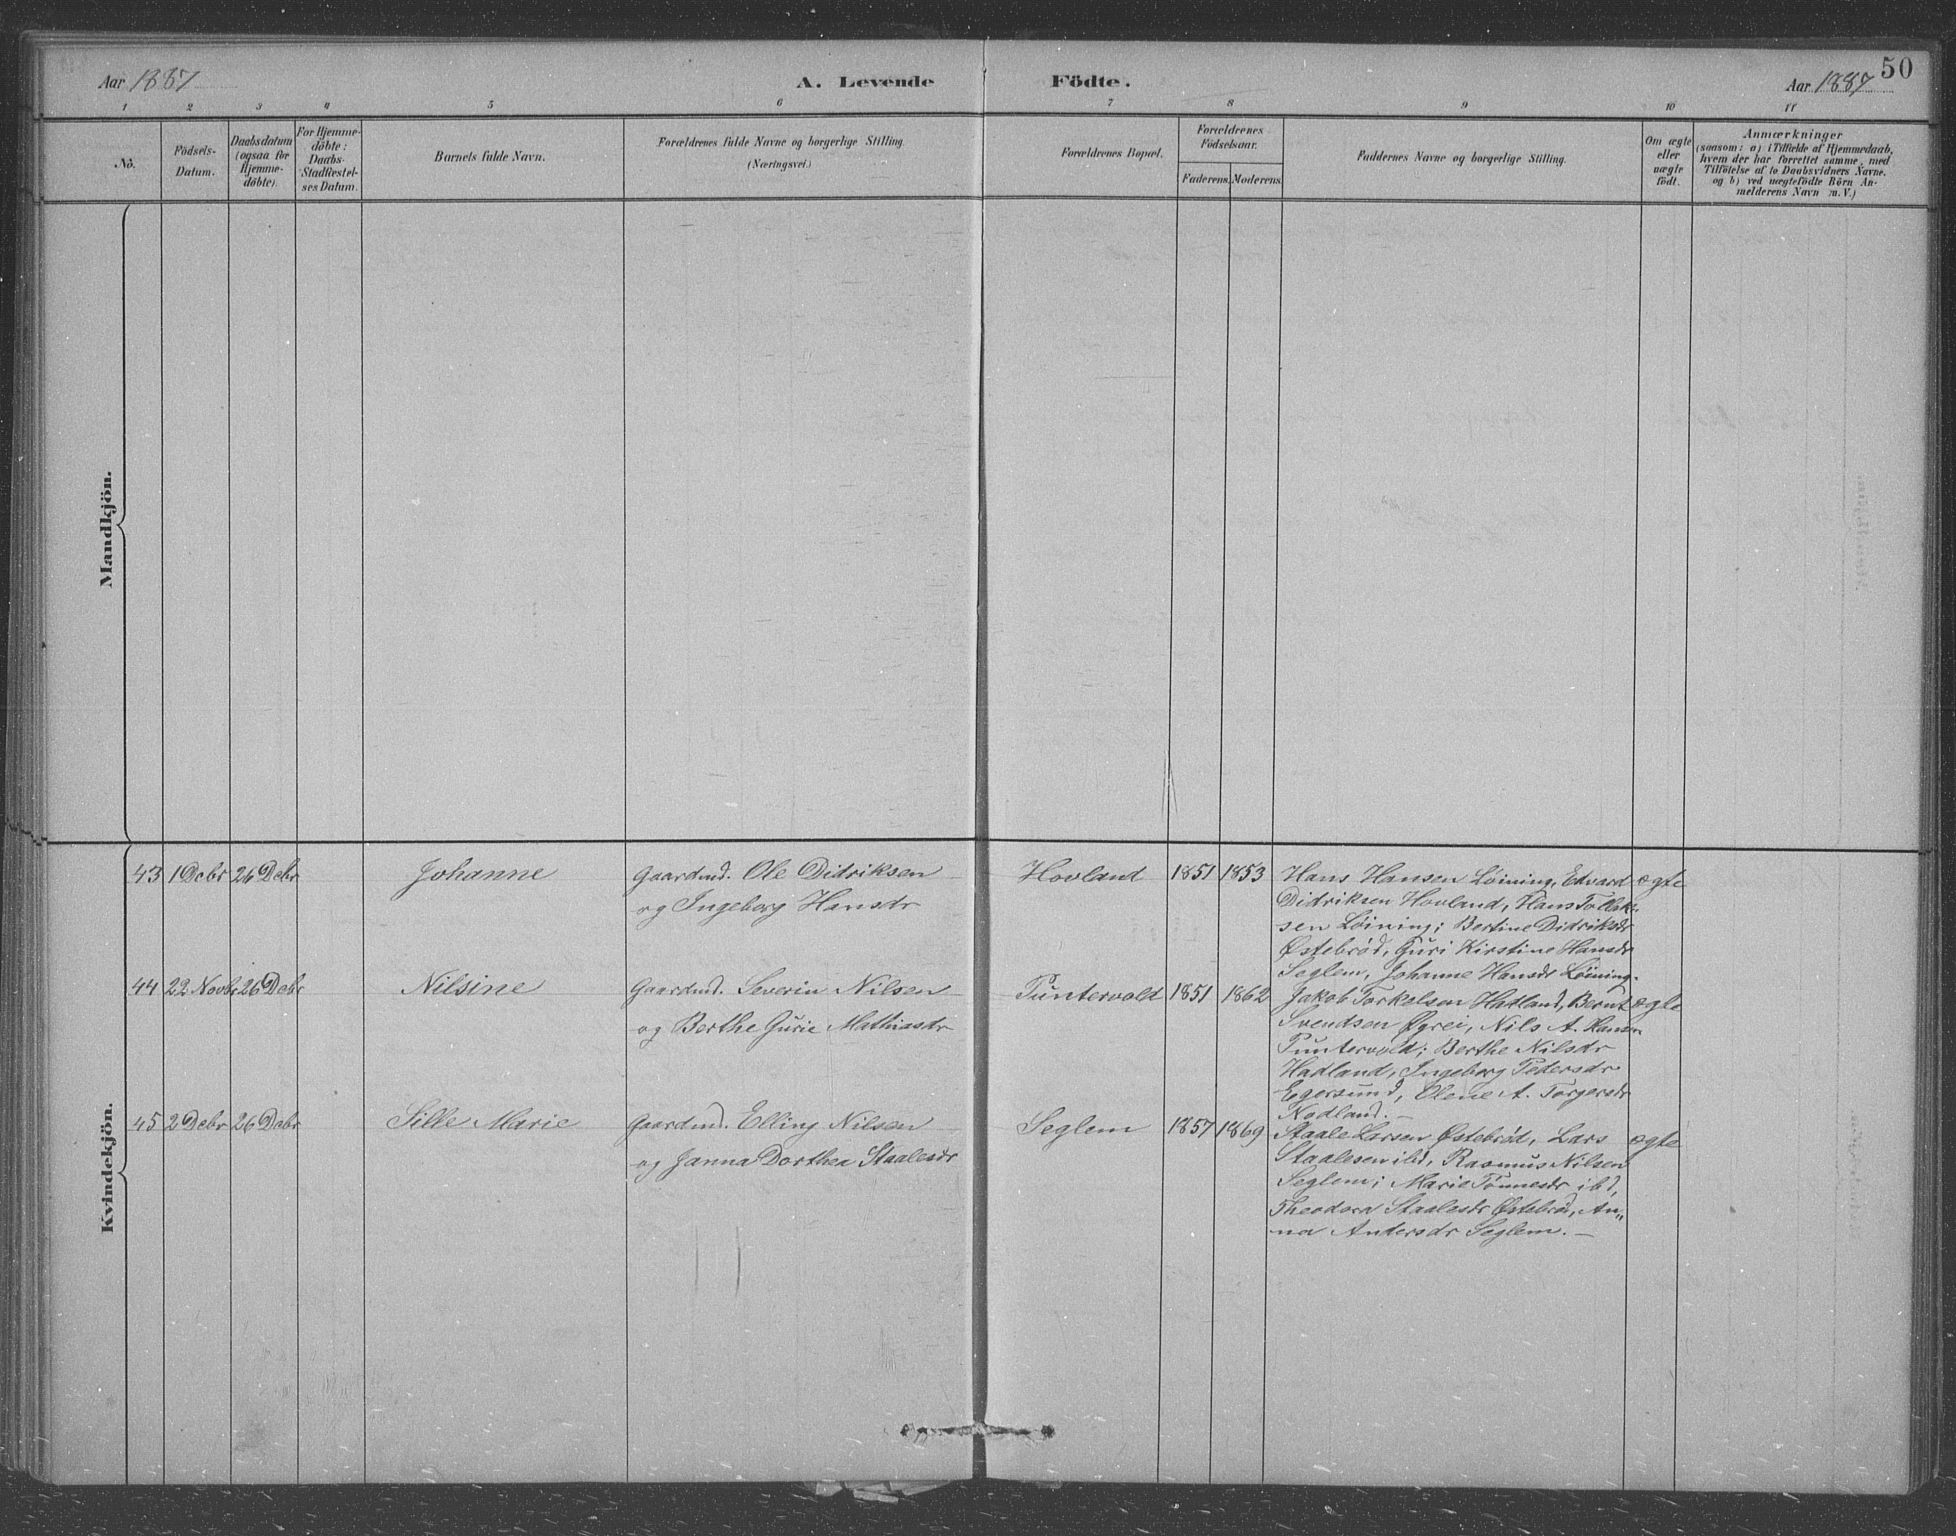 50
Aar 1887 A. Levende Födte. Aar 1887
1 2 3 4 5 6 7 8 9 10 11
No.
Födsels-
Datum.
Daabsdatum
(ogsaa for
Hjemme-
döbte).
For Hjemme-
döbte:
Daabs-
Stadfæstel-
ses Datum.
Barnets fulde Navn.
Forældrenes fulde Navne og borgerlige Stilling
(Næringsvei.)
Forældrenes Bopæl.
Forældrenes
Födselsaar.
Faderens. Moderens.
Faddernes Navne og borgerlige Stilling.
Om ægte
eller
uægte
födt.
Anmærkninger
(saasom: a) i Tilfælde af Hjemmedaab,
hvem der har forrettet samme, med
Tilföielse af to Daabsvidners Navne,
og b) ved uægtefödte Börn An-
melderens Navn m. V.)
Mandkjön.
Kvindekjön.
43 1 Debr 26 Debr Johanne Gaardmd. Ole Didriksen Hovland 1851 1853 Hans Hansen Löining, Edvard ægte
og Ingeborg Hansdr Didriksen Hovland, Hans Tollak-
sen Löining; Bertine Didriksdr
Østebröd, Guri Kirstine Hansdr
Seglem, Johanne Hansdr Löining.
44 22 Novbr 26 Debr Nilsine Gaardmd. Severin Nilsen Puntervold 1851 1862 Jakob Torkelsen Hadland, Bernt ægte
og Berthe Gurie Mathiasdr Svendsen Øgrei, Nils A. Hansen
Puntervold; Berthe Nilsdr
Hadland, Ingeborg Pedersdr
Egersund, Olene A. Torgersdr
Nodland. –
45 2 Debr 26 Debr Sille Marie Gaardmd. Elling Nilsen Seglem 1857 1869 Staale Larsen Østebröd, Lars ægte
og Janna Dorthea Staalesdr Staalesen ibd, Rasmus Nilsen
Seglem; Marie Tönnesdr ibd,
Theodora Staalesdr Østebröd, An„
na Andersdr Seglem. –